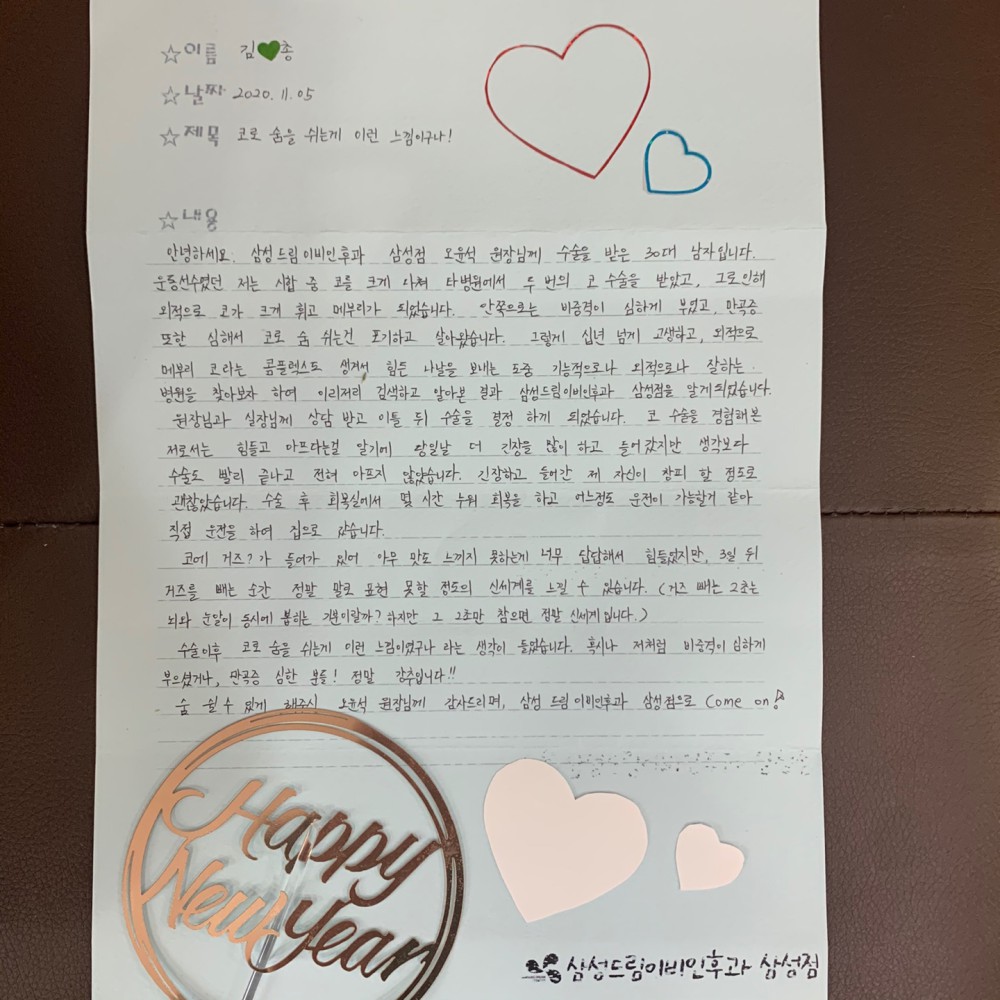 ☆이름 김💚총
☆날짜 2020.11.05
☆제목 코로 숨을 쉬는게 이런 느낌이구나!
☆내용
안녕하세요. 삼성드림이비인후과 삼성점 오윤석 원장님께 수술을 받은 30대 남자입니다.
운동선수였던 저는 시합 중 코를 크게 다쳐 타병원에서 두 번의 코 수술을 받았고, 그로인해
외적으로 코가 크게 휘고 메부리가 되었습니다. 안쪽으로는 비중격이 심하게 부었고, 만곡증
또한 심해서 코로 숨 쉬는건 포기하고 살아왔습니다. 그렇게 십년 넘게 고생하고, 외적으로
메부리 코라는 콤플렉스도 생겨서 힘든 나날을 보내는 도중 기능적으로나 외적으로나 잘하는
병원을 찾아보자 하여 이리저리 검색하고 알아본 결과 삼성드림이비인후과 삼성점을 알게되었습니다.
원장님과 실장님께 상담 받고 이틀 뒤 수술을 결정 하게 되었습니다. 코 수술을 경험해본
저로서는 힘들고 아프다는걸 알기에 당일날 더 긴장을 많이 하고 들어갔지만 생각보다
수술도 빨리 끝나고 전혀 아프지 않았습니다. 긴장하고 들어간 제 자신이 창피 할 정도로
괜찮았습니다. 수술 후 회복실에서 몇 시간 누워 회복을 하고 어느정도 운전이 가능할거 같아
직접 운전을 하여 집으로 갔습니다.
코에 거즈?가 들어가 있어 아무 맛도 느끼지 못하는게 너무 답답해서 힘들었지만, 3일 뒤
거즈를 빼는 순간 정말 말로 표현 못할 정도의 신세계를 느낄 수 있습니다. (거즈 빼는 2초는
뇌와 눈알이 동시에 뽑히는 기분이랄까? 하지만 그 2초만 참으면 정말 신세계입니다.)
수술이후 코로 숨을 쉬는게 이런 느낌이였구나 라는 생각이 들었습니다. 혹시나 저처럼 비중격이 심하게
부으셨거나, 만곡증 심한 분들! 정말 강추입니다!!
숨 쉴수 있게 해주신 오윤석 원장님께 감사드리며, 삼성 드림이비인후과 삼성점으로 Come on!
Happy
New Year
삼성드림이비인후과 삼성점